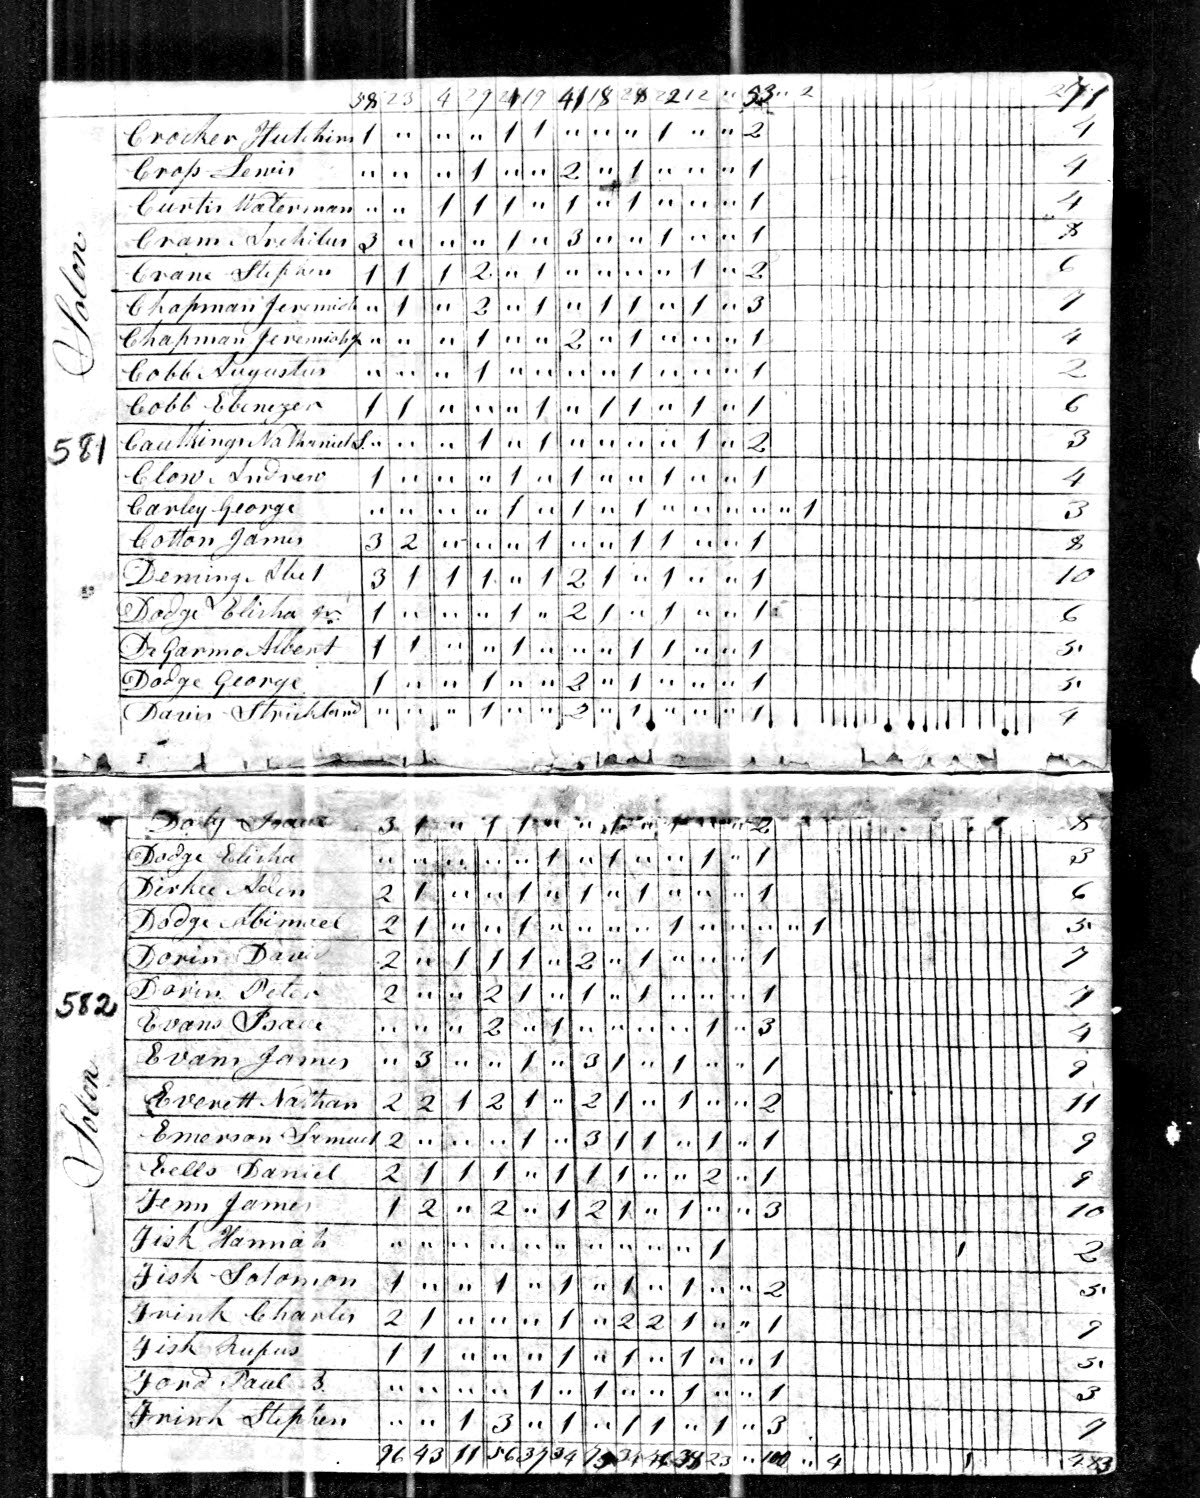 58 23 4 29 21 19 41 18 28 22 12 " 53 " 2
Crocker Hutchins 1 " " " 1 1 " " " 1 " " 2 4
Cross Lewis " " " 1 " " 2 " 1 " " " 1 4
Curtis Waterman " " 1 1 1 " 1 " 1 " " " 1 4
Cram Architus 3 " " " 1 " 3 " " 1 " " 1 8
Crane Stephen 1 1 1 2 " 1 " " " " 1 " 2 6
Chapman Jeremiah " 1 " 2 " 1 " 1 1 " 1 " 3 7
Chapman Jeremiah Jr " " " 1 " " 2 " 1 " " " 1 4
Cobb Augustus " " " 1 " " " " 1 " " " 1 2
Cobb Ebenezer 1 1 " " " 1 " 1 1 " 1 " 1 6
581
Solon
Caulkings Nathaniel S. " " " 1 " 1 " " " " 1 " 2 3
Clow Andrew 1 " " " 1 " 1 " " 1 " " 1 4
Carley George " " " " 1 " 1 " 1 " " " " " 1 3
Cotton James 3 2 " " " 1 " " 1 1 " " 1 8
Deming Abel 3 1 1 1 " 1 2 1 " 1 " " 1 10
Dodge Elisha Jr. 1 " " " 1 " 2 1 " 1 " " 1 6
DeGarmo Albert 1 1 " " 1 " " " 1 1 " " 1 5
Dodge George 1 " " 1 " " 2 " 1 " " " 1 5
Davis Strickland " " " 1 " " 2 " 1 " " " 1 4
Doty Isaac 3 1 " 1 1 " " 1 " 1 " " 2 8
Dodge Elisha " " " " " 1 " 1 " " 1 " 1 3
Dirkee Aden 2 1 " " 1 " 1 " 1 " " " 1 6
Dodge Abimael 2 1 " " 1 " " " " 1 " " " " 1 5
Dorin David 2 " 1 1 1 " 2 " 1 " " " 1 7
Dorin Peter 2 " " 2 1 " 1 " 1 " " " 1 7
582
Solon
Evans Isaac " " " 2 " 1 " " " " 1 " 3 4
Evans James " 3 " " 1 " 3 1 " 1 " " 1 9
Everett Nathan 2 2 1 2 1 " 2 1 " 1 " " 2 11
Emerson Samuel 2 " " " 1 " 3 1 1 " 1 " 1 9
Eells Daniel 2 1 1 1 " 1 1 1 " " 2 " 1 9
Fenn James 1 2 " 2 " 1 2 1 " 1 " " 3 10
Fish Hannah " " " " " " " " " " 1 1 2
Fish Solomon 1 " " 1 " 1 " 1 " 1 " " 2 5
Frink Charles 2 1 " " " 1 " 2 2 1 " " 1 9
Fish Rufus 1 1 " " " 1 " 1 " 1 " " 1 5
Ford Paul B. " " " " 1 " 1 " " 1 " " 1 3
Frink Stephen " " 1 3 " 1 " 1 1 " 1 " 3 7
96 43 11 56 37 34 75 34 46 38 23 " 100 " 4 1 483